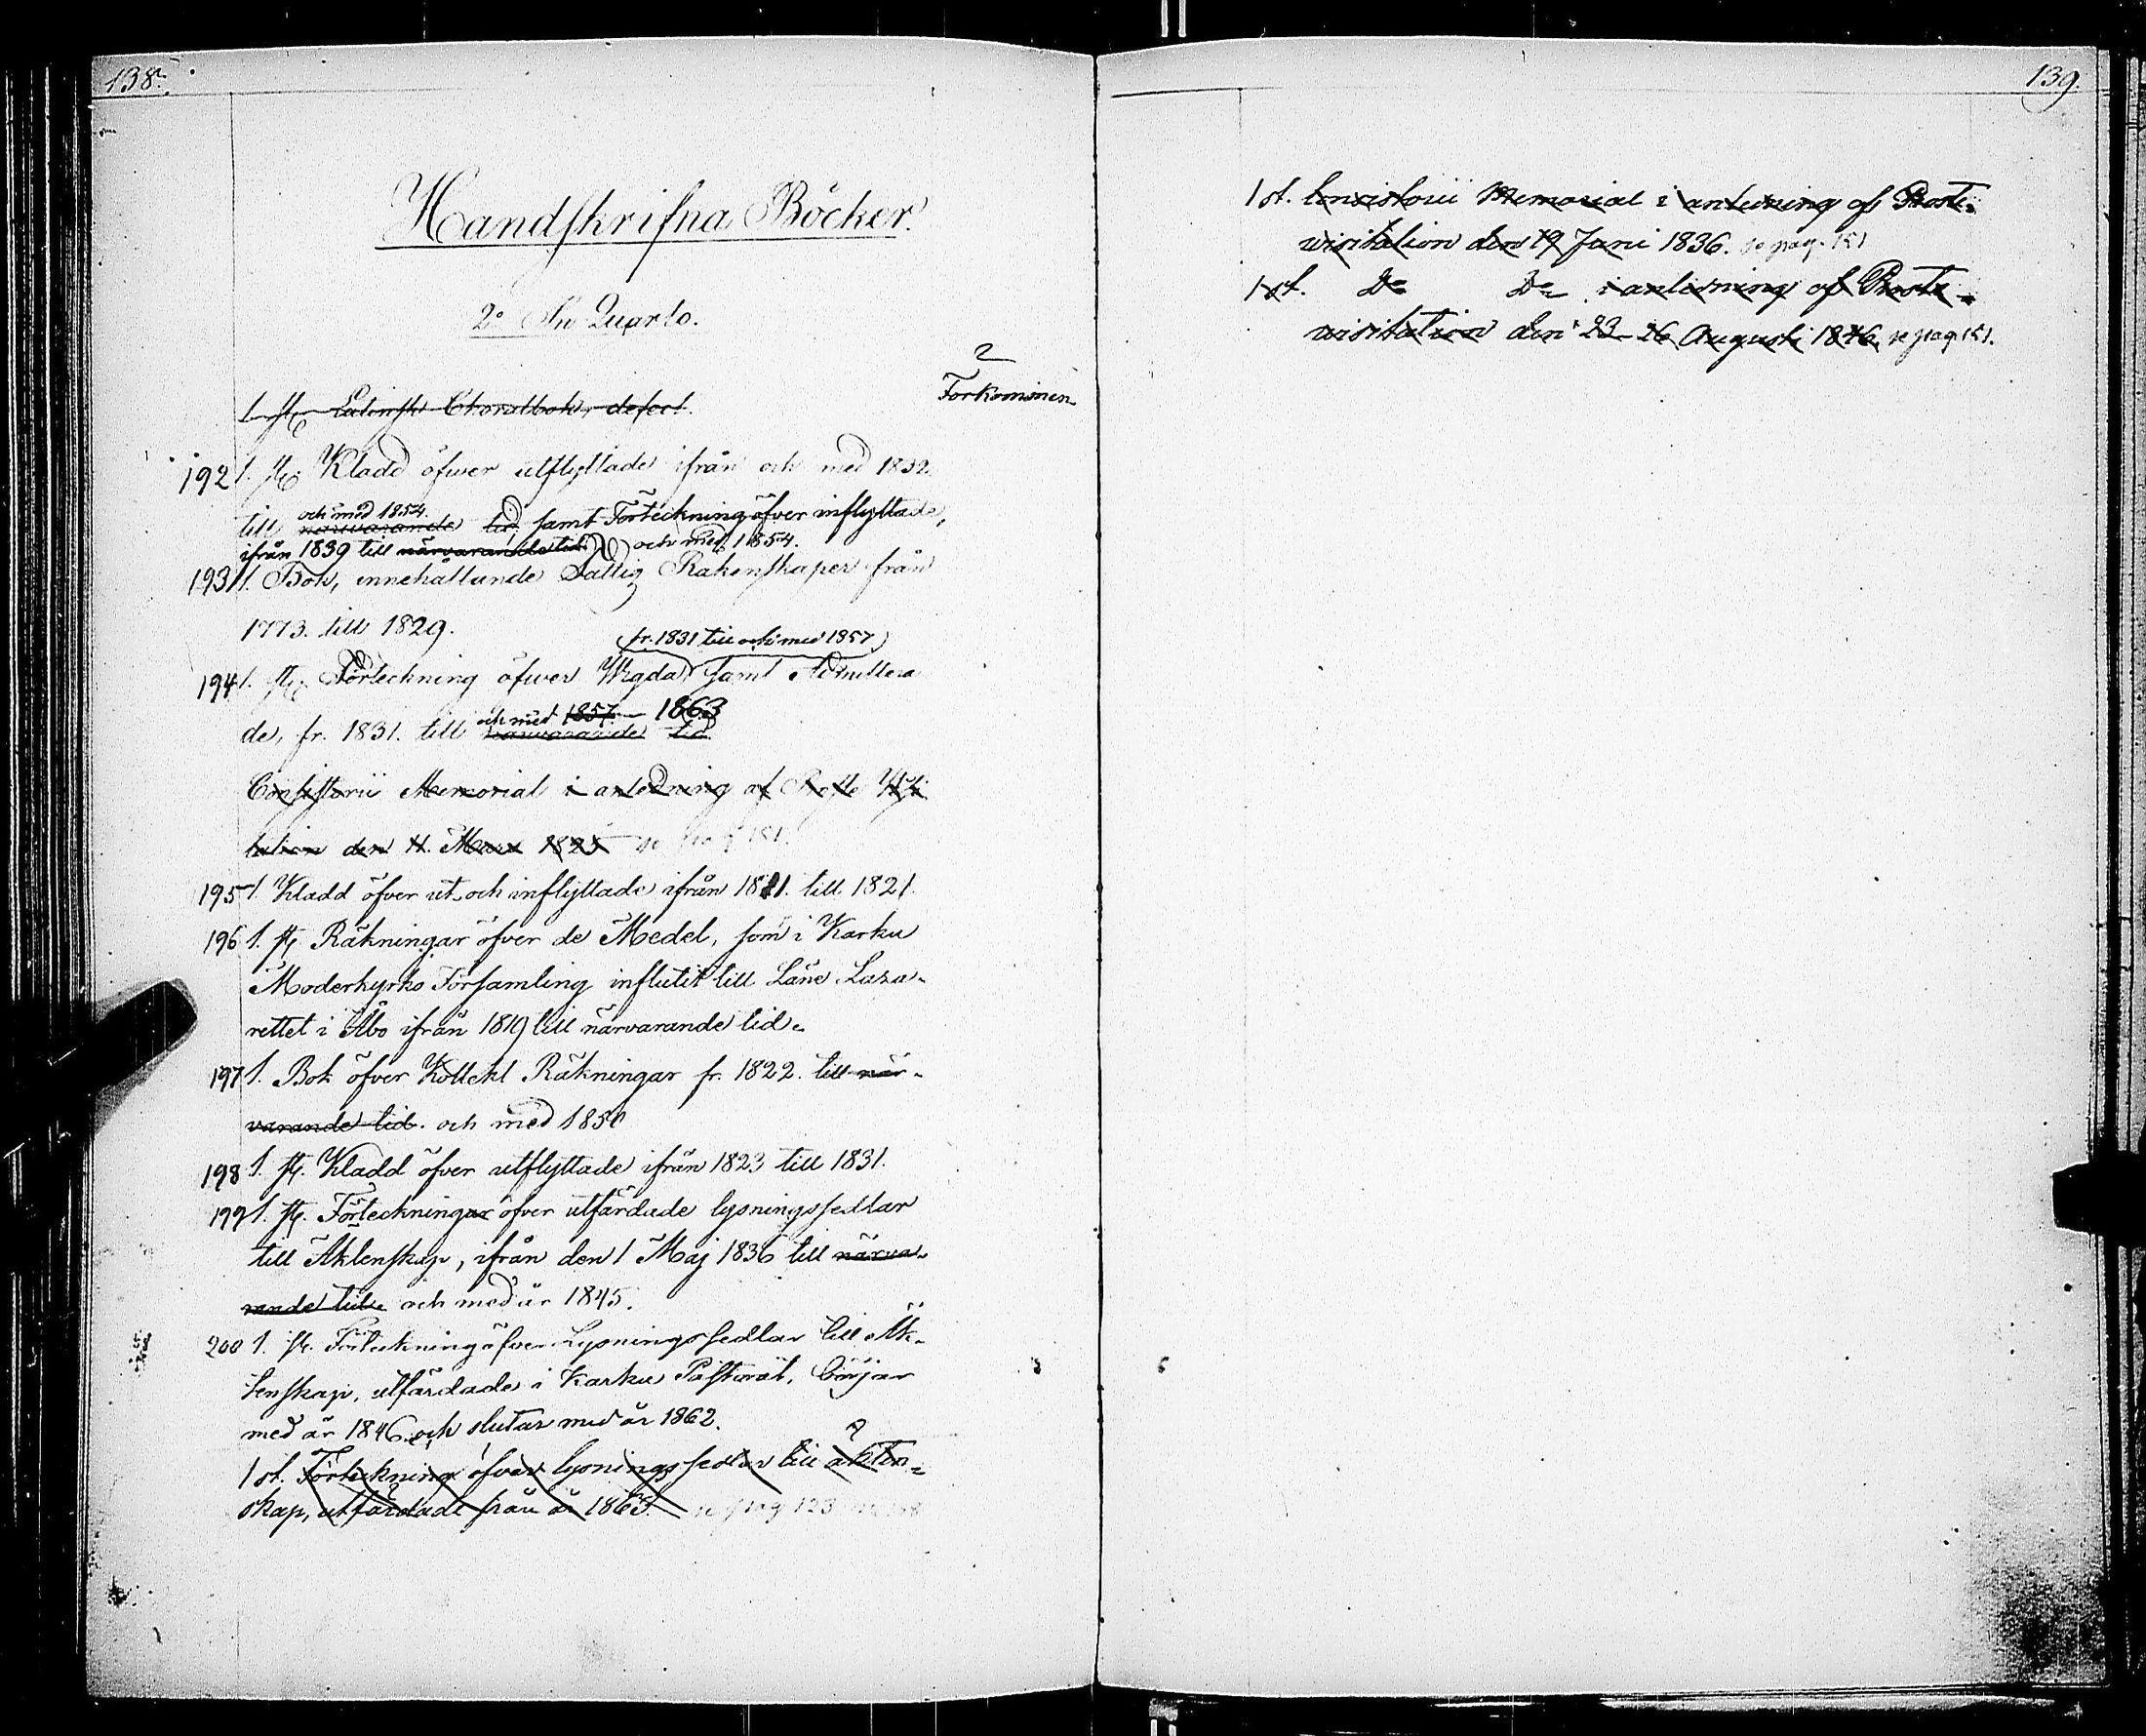 138.
Handskrifna Böcker.
2o In Quarto.
?
Förkommen
1. st. Latinsk Choralbok, defect.
192 1. st. Kladd öfwer utflyttade ifrån och med 1832.
och med 1854.
till narwarande tid, samt Förteckning öfver inflyttade,
ifrån 1839 till närvarande tid och med 1854.
193 1. Bok, innehållande Fattig Räkenskaper från
1773. till 1829.
(fr. 1831 till och med 1857)
194 1. st. Förteckning öfwer Wigda samt Admittera
och med 1857. 1863
de, fr. 1831. till närwarande tid
Consistorii Memorial i anledning af Proste Wisi
tation den 11. Mars 1825 se pag 151.
195 1. Kladd öfver ut och inflyttade ifrån 1811. till 1821.
196 1. st. Räkningar öfver de Medel, som i Karku
Moderkyrko Församling influtit till Läne Laza-
rettet i Åbo ifrån 1819 till närvarande tid.
197 1. Bok öfver Kollekt Räkningar fr. 1822. till när-
varande tid. och med 1850
198 1. st. Kladd öfver utflyttade ifrån 1823 till 1831.
199 1. st. Förteckningar öfver utfärdade lysningssedlar
till Äktenskap, ifrån den 1 Maj 1836 till närva-
rande tid. och med år 1845.
200 1. st. Förteckning öfver Lysningssedlar till Äk-
tenskap, utfärdade i Karku Pastorat, börjar
med år 1846. och slutar med år 1862.
1 st. Förteckning öfver lysningssedlar till äkten-
skap, utfärdade från år 1863. se pag 123
139.
1 st. Consistorii Memorial i anledning af Proste-
wisitation den 19 Juni 1836. se pag. 151
1 st. Do Do i anledning af Proste-
wisitation den 23-26 Augusti 1846. se pag 151.